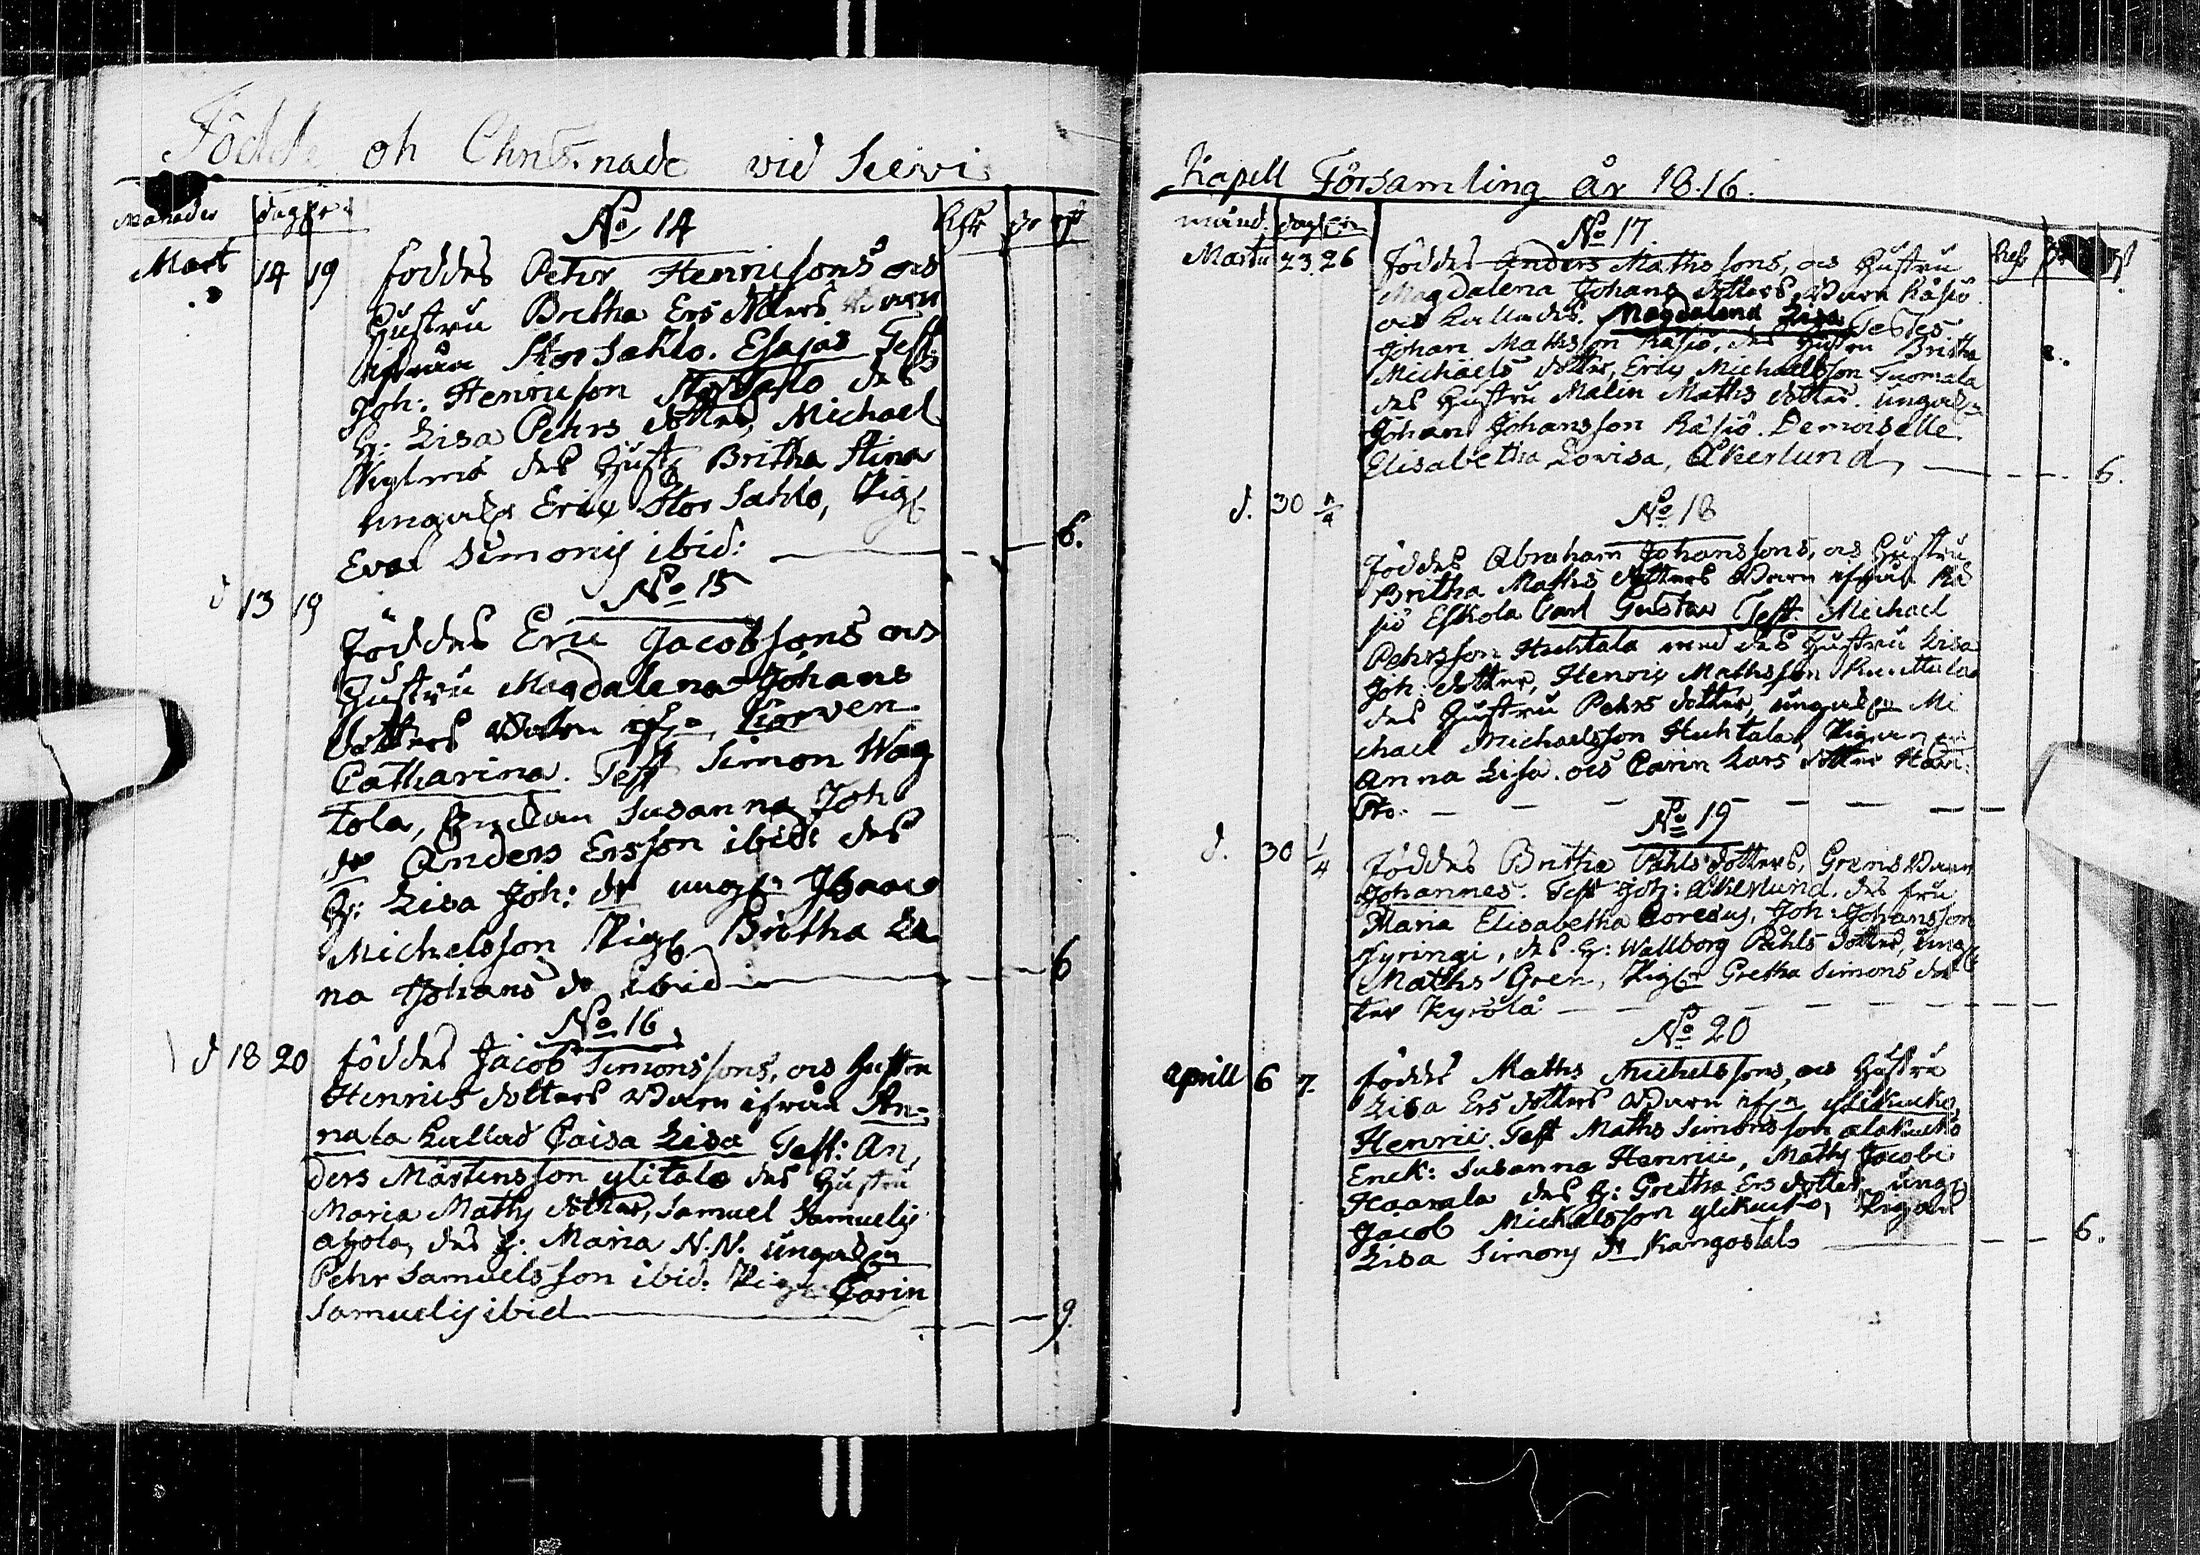 Födde och Christnade vid Siewi
Månader dagar
No 14
Mart 14 19 föddes Pehr Henricsons och
Hustru Britha Ers dotters Barn
ifrån Stor Sahlo. Esajas Test:
Joh: Henricson Storsahlo des
H: Lisa Pehrs dotter, Michael
des Hust Britha Stina
Eric Stor Sahlo, Pig
Eva Simonis ibid: 6.
No 15
d 13 19
föddes Eric Jacobssons och
Hustru Magdalena Johans
dotters Barn Korven
Catharina. Test Simon Wag
tola, Enckan Susanna Joh
dr Anders Ersson ibid: des
H: Lisa Joh: dr ungk: Isaac
Michelsson Pig Britha Le
na Johans dr ibid 6
No 16
d 18 20 föddes Jacob Simonssons, och Hustru
Henrics dotters Barn ifrån An=
nala kallad Caisa Lisa Test: An,
ders Mårtensson ylitalo des Hustru
Maria Maths dotter, Samuel Samuelis
ahola, des H: Maria N.N.
Pehr Samuelsson ibid. Pig Carin
Samuelis ibid 9.
Kapell Församling år 1816.
månd. dagar
No 17.
Martii 23. 26 föddes Anders Mathssons, och Hustru
Magdalena Johans dotters Barn Råsiö
och kallades. Magdalena Lisa Testes
Johan Mathsson Råsiö, des Hustru Britha
Michaels dotter, Eric Michaelsson Tuomala
des Hustru Malin Maths dotter.
Johan Johansson Råsiö. Demoiselle
Elisabetha Lovisa, Åkerlund, 6.
d. 30 1/4 No 18
föddes Abraham Johanssons, och Hustru
Britha Maths dotters Barn ifrån Rå
siö Eskola Carl Gustav Test: Michael
Pehrsson Huhtala med des Hustru Lisa
Joh: dotter, Henric Mathsson
des Hustru Pehrs dotter, Mi
chael Michaelsson Huhtala, Pigan
Anna Lisa. och Carin Lars dotter
No 19
d. 30 1/4 föddes Britha Påhls dotters, Grens Barn
Johannes. Test Joh: Åkerlund. des fru
Maria Elisabetha Joh: Johansson
des. H: Wallborg Påhls dotter,
Maths Gren, Pig Gretha Simons dot
ter Kyrölä
No 20
Aprill 6 7. födde Maths Michelssons, och Hustru
Lisa Ers dotters Barn ylikuckå,
Henric. Test Maths Simonsson alakucko
Enck: Susanna Henrici, Maths Jacobi
Haarala des H: Gretha Ers dotter, ung
Jacob Michelsson ylikucko, Pigan
Lisa Simons dr Kangostalo 6.